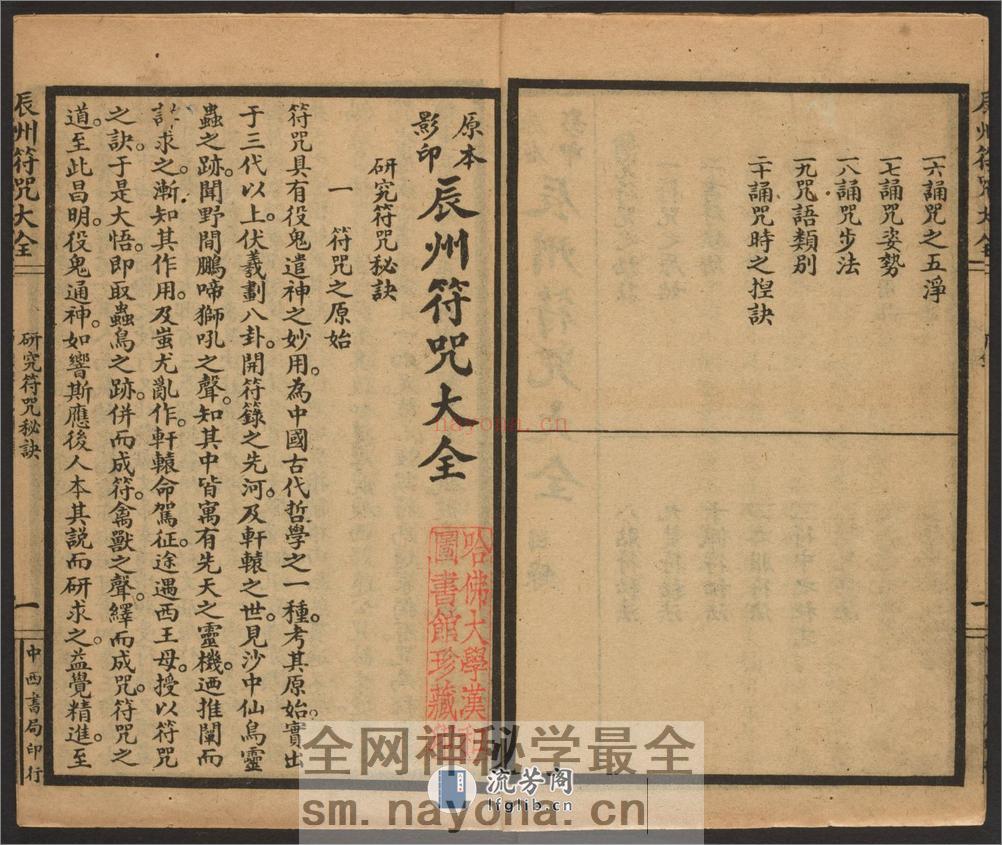 一六誦咒之五淨
一七誦咒姿勢
一八誦咒步法
一九咒語類別
二十誦咒時之揑訣
原本
影印
辰州符咒大全
研究符咒秘訣
一 符咒之原始
符咒具有役鬼遣神之妙用。為中國古代哲學之一種。考其原始。實出
于三代以上。伏羲劃八卦。開符籙之先河。及軒轅之世。見沙中仙鳥靈
蟲之跡。聞野間鵬啼獅吼之聲。知其中皆寓有先天之靈機。迺推闡而
許求之。漸知其作用。及蚩尤亂作。軒轅命駕征途。遇西王母。授以符咒
之訣。于是大悟。即取蟲鳥之跡。併而成符。禽獸之聲。繹而成咒。符咒之
道。至此昌明。役鬼通神。如響斯應。後人本其說而研求之。益覺精進。至
辰州符咒大全
研究符咒秘訣
一
中西書局印行
哈佛大學漢和
圖書館珍藏印
nayona.cn
全网神秘学最全
sm.nayona.cn
流芳阁
lfglib.cn